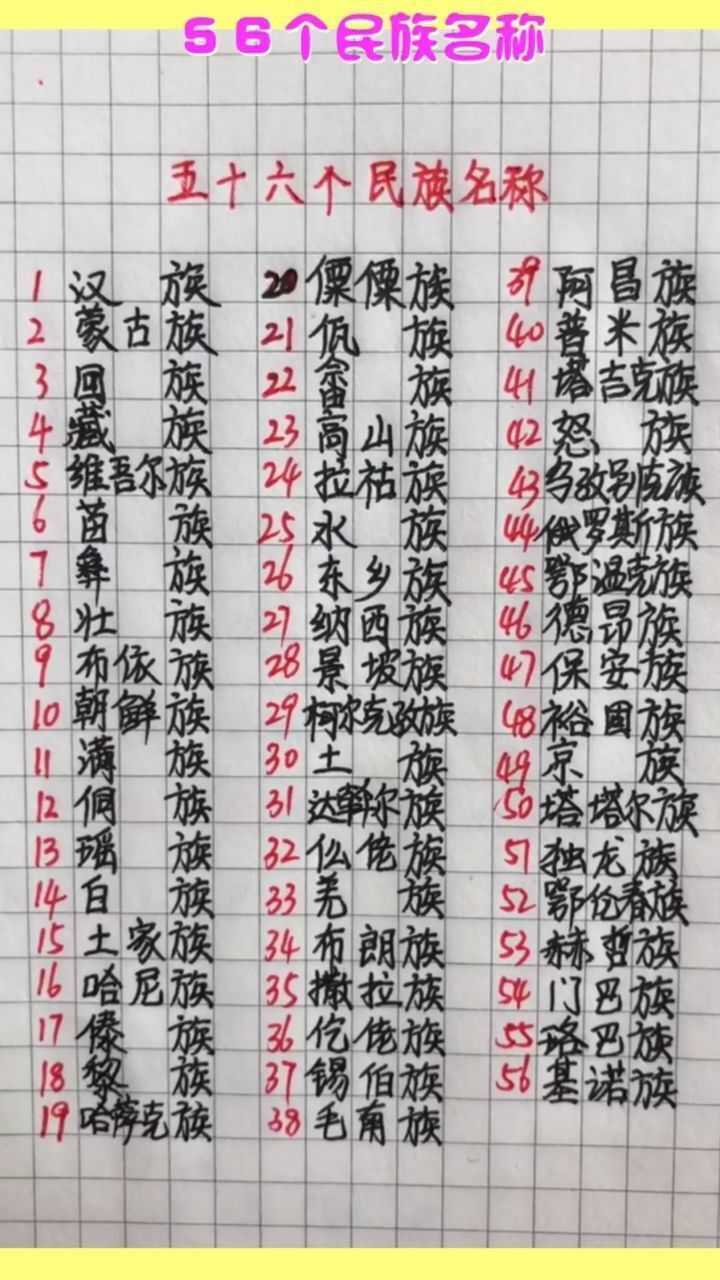 56个民族名称
五十六个民族名称
1 汉族
2 蒙古族
3 回族
4 藏族
5 维吾尔族
6 苗族
7 彝族
8 壮族
9 布依族
10 朝鲜族
11 满族
12 侗族
13 瑶族
14 白族
15 土家族
16 哈尼族
17 傣族
18 黎族
19 哈萨克族
20 傈傈族
21 佤族
22 畲族
23 高山族
24 拉祜族
25 水族
26 东乡族
27 纳西族
28 景坡族
29 柯尔克孜族
30 土族
31 达斡尔族
32 仫佬族
33 羌族
34 布朗族
35 撒拉族
36 仡佬族
37 锡伯族
38 毛南族
39 阿昌族
40 普米族
41 塔吉克族
42 怒族
43 乌孜别克族
44 俄罗斯族
45 鄂温克族
46 德昂族
47 保安族
48 裕固族
49 京族
50 塔塔尔族
51 独龙族
52 鄂伦春族
53 赫哲族
54 门巴族
55 珞巴族
56 基诺族